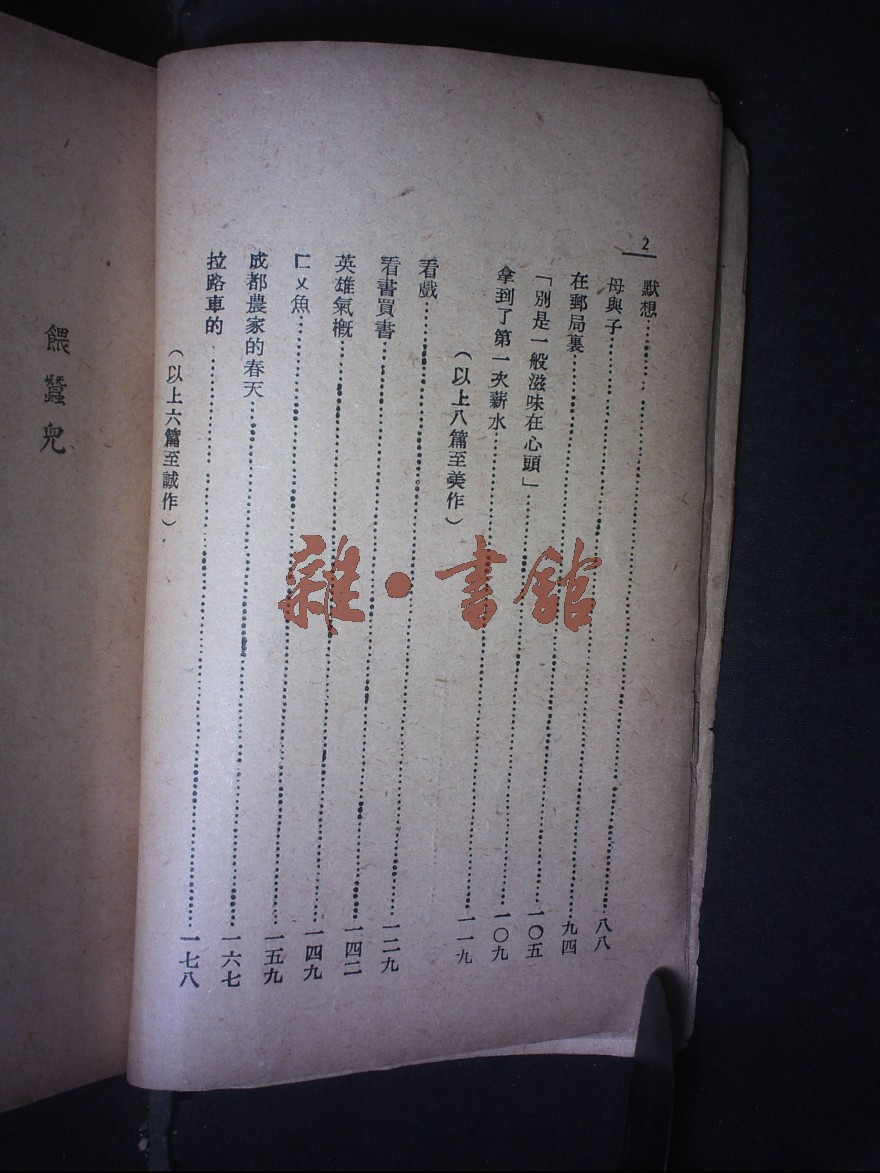 2
默想……八八
母與子……九四
在郵局裏……一〇五
「別是一般滋味在心頭」……一〇九
拿到了第一次薪水……一一九
（以上八篇至美作）
看戲……一二九
看書買書……一四二
英雄氣概……一四九
ㄈㄨ魚……一五九
成都農家的春天……一六七
拉路車的……一七八
（以上六篇至誠作）
餵蠶兒
雜·書館